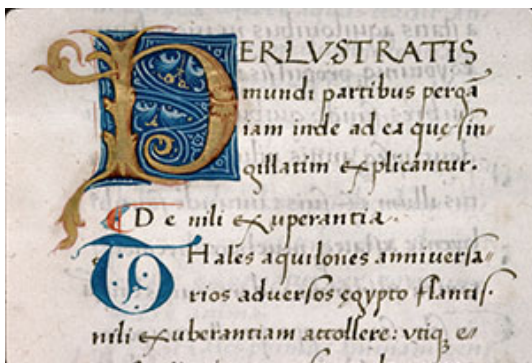 PERLVSTRATIS
mundi partibus pergā
iam inde ad ea quę sin-
gillatim explicantur.
De nili exuperantia.
Thales aquilones anniversa-
rios adversos ęgypto flantis.
nili exuberantiam attollere: utiq e-